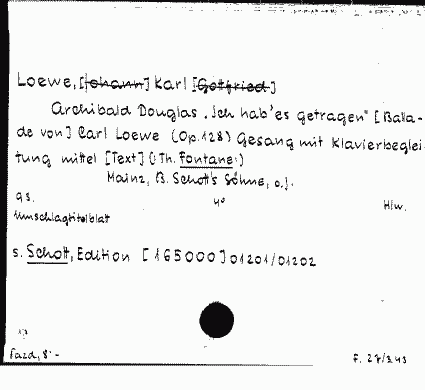 Loewe, [Johann] Karl [Gottfried]
Archibald Douglas. "Ich hab' es getragen" [Balla-
de von] Carl Loewe (Op. 128) Gesang mit Klavierbeglei-
tung mittel [Text] (: Th. Fontane :)
Mainz, B. Schott's Söhne, o.J.
9 S. 4° Hlw.
Umschlagtitelblat
s. Schott, Edition [165000] 01201/01202
F. 27/343